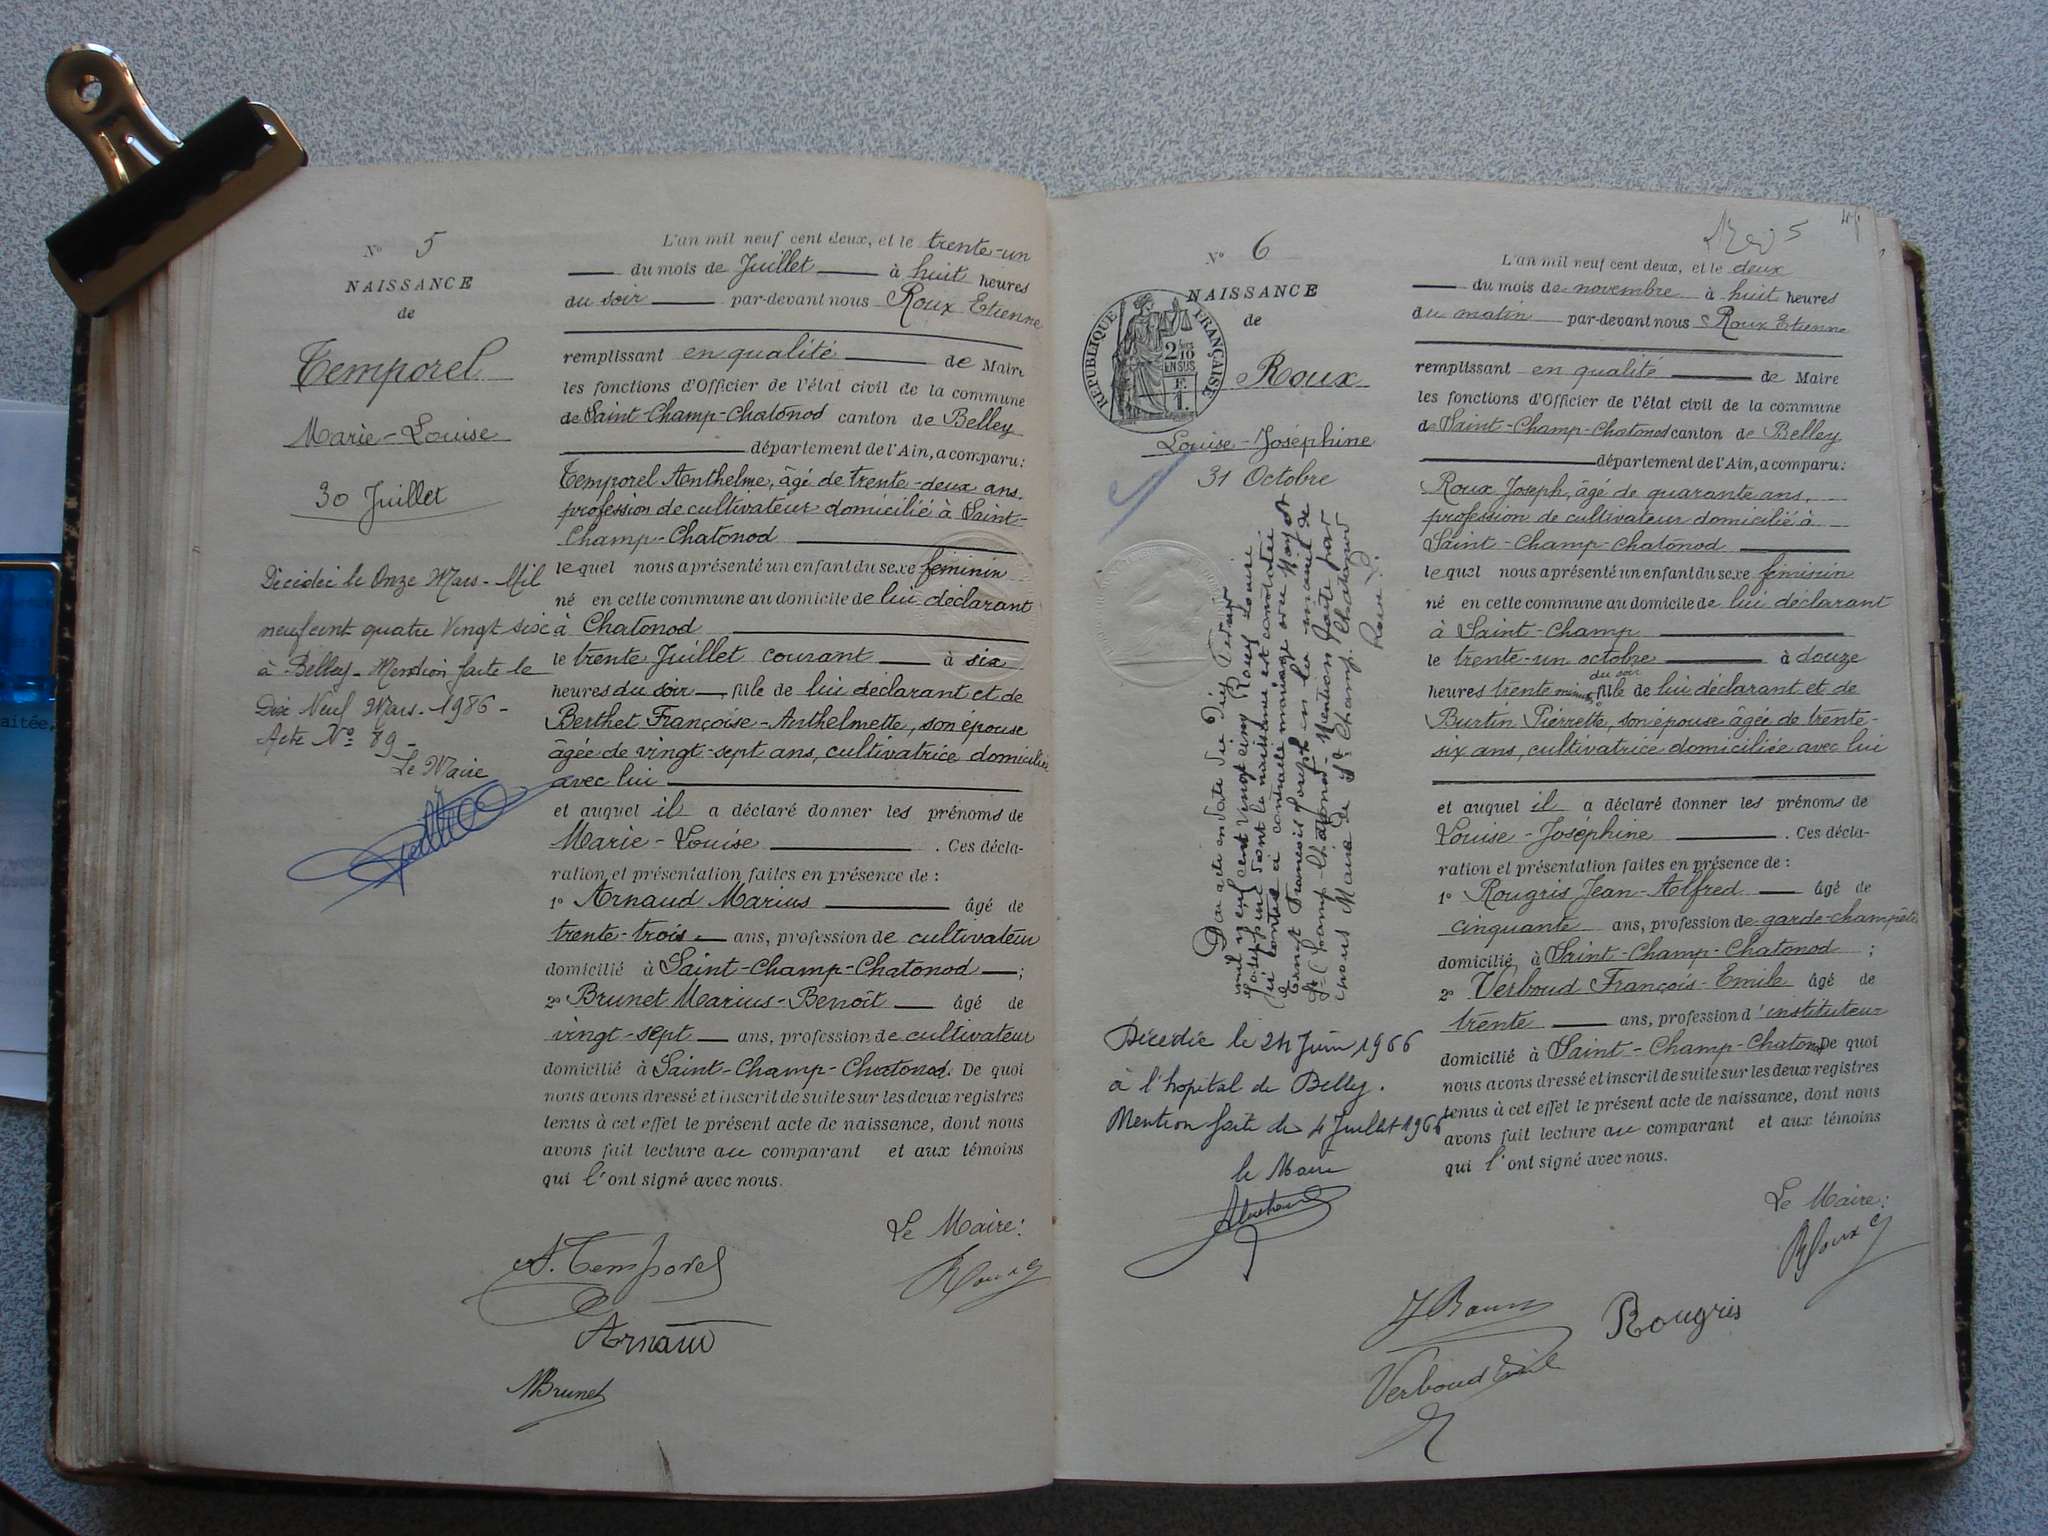 N° 5
NAISSANCE
de
Temporel
Marie-Louise
30 Juillet
Décédée le Onze Mars - Mil
neufcent quatre Vingt six
à Belley - Mention faite le
Dix Neuf Mars - 1986 -
Acte N° 89 -
Le Maire
L'an mil neuf cent deux, et le trente-un
du mois de Juillet à huit heures
du soir par-devant nous Roux Etienne
remplissant en qualité de Maire
les fonctions d'Officier de l'état civil de la commune
de Saint-Champ-Chatonod canton de Belley
département de l'Ain, a comparu:
Temporel Anthelme, âgé de trente-deux ans,
profession de cultivateur domicilié à Saint-
Champ-Chatonod
lequel nous a présenté un enfant du sexe féminin
né en cette commune au domicile de lui déclarant
à Chatonod
le trente Juillet courant à six
heures du soir, fille de lui déclarant et de
Berthet Françoise-Anthelmette, son épouse
âgée de vingt-sept ans, cultivatrice domiciliée
avec lui
et auquel il a déclaré donner les prénoms de
Marie-Louise . Ces décla-
ration et présentation faites en présence de :
1° Arnaud Marius âgé de
trente-trois ans, profession de cultivateur
domicilié à Saint-Champ-Chatonod ;
2° Brunet Marius-Benoît âgé de
vingt-sept ans, profession de cultivateur
domicilié à Saint-Champ-Chatonod. De quoi
nous avons dressé et inscrit de suite sur les deux registres
tenus à cet effet le présent acte de naissance, dont nous
avons fait lecture au comparant et aux témoins
qui l'ont signé avec nous.
Le Maire:
A. Temporel
Roux E
Arnaud
MBrunet
N° 6
NAISSANCE
de
RÉPUBLIQUE FRANÇAISE
2/10
EN SUS
F.
1.
Roux
Louise-Joséphine
31 Octobre
Par acte en date du dix Février
mil neuf cent vingt cinq Roux Louise
Joséphine dont la naissance est constatée
ci contre a contracté mariage avec
François Joseph en la mairie de
St Champ-Chatonod. Mention faite par
nous Maire de St Champ-Chatonod
Roux E.
Décédée le 24 Juin 1966
à l'hopital de Belley.
Mention faite le 4 Juillet 1966
le Maire
L'an mil neuf cent deux, et le deux
du mois de novembre à huit heures
du matin par-devant nous Roux Etienne
remplissant en qualité de Maire
les fonctions d'Officier de l'état civil de la commune
de Saint-Champ-Chatonod canton de Belley
département de l'Ain, a comparu:
Roux Joseph, âgé de quarante ans,
profession de cultivateur domicilié à
Saint-Champ-Chatonod
lequel nous a présenté un enfant du sexe féminin
né en cette commune au domicile de lui déclarant
à Saint-Champ
le trente-un octobre à douze
heures trente minutes du soir, fille de lui déclarant et de
Burtin Pierrette, son épouse âgée de trente-
six ans, cultivatrice domiciliée avec lui
et auquel il a déclaré donner les prénoms de
Louise-Joséphine . Ces décla-
ration et présentation faites en présence de :
1° Rougris Jean-Alfred âgé de
cinquante ans, profession de garde-champêtre
domicilié à Saint-Champ-Chatonod ;
2° Verboud François-Emile âgé de
trente ans, profession d'instituteur
domicilié à Saint-Champ-Chatonod De quoi
nous avons dressé et inscrit de suite sur les deux registres
tenus à cet effet le présent acte de naissance, dont nous
avons fait lecture au comparant et aux témoins
qui l'ont signé avec nous.
Le Maire:
Roux E
J Roux
Rougris
Verboud Emile